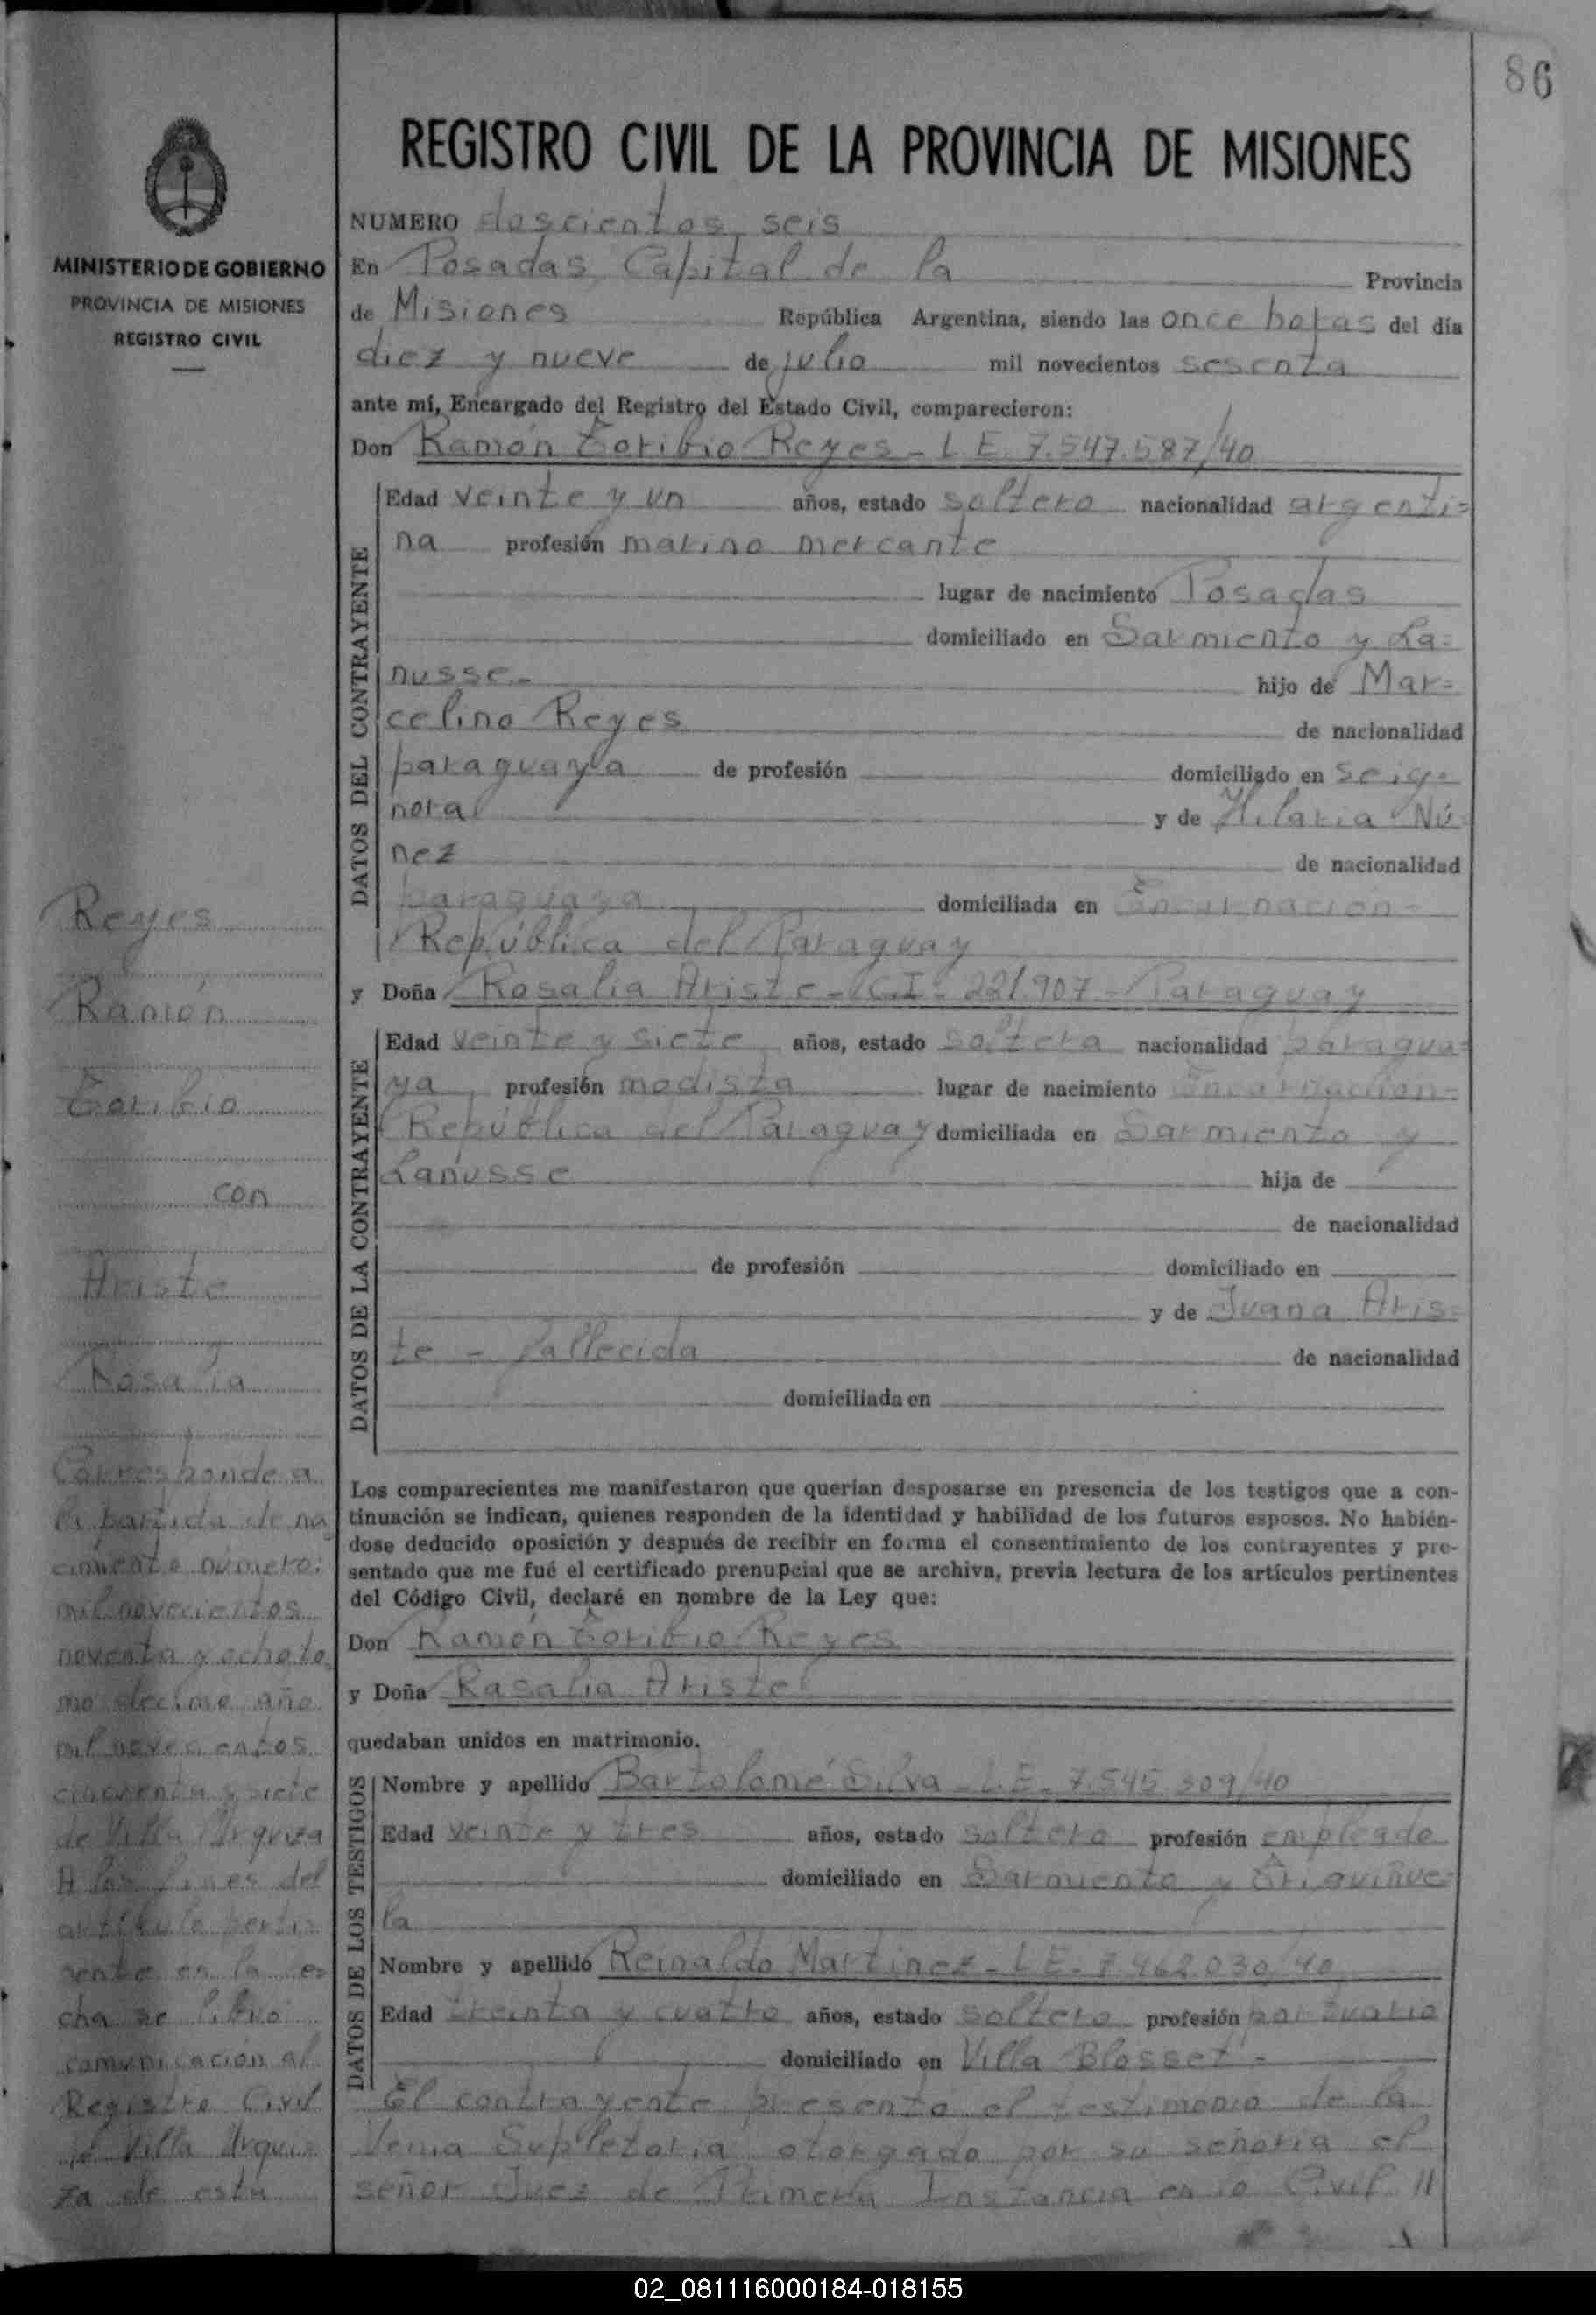 86
REGISTRO CIVIL DE LA PROVINCIA DE MISIONES
MINISTERIO DE GOBIERNO
PROVINCIA DE MISIONES
REGISTRO CIVIL
NUMERO doscientos seis
En Posadas, Capital de la Provincia
de Misiones República Argentina, siendo las once horas del día
diez y nueve de julio mil novecientos sesenta
ante mí, Encargado del Registro del Estado Civil, comparecieron:
Don Ramón Toribio Reyes - L.E. 7.547.587/40
DATOS DEL CONTRAYENTE
Edad veinte y un años, estado soltero nacionalidad argenti=
na profesión marino mercante
lugar de nacimiento Posadas
domiciliado en Sarmiento y La=
nusse.- hijo de Mar=
celino Reyes de nacionalidad
paraguaya de profesión domiciliado en se ig=
nora y de Hilaria Nú=
nez de nacionalidad
paraguaya domiciliada en Encarnación-
República del Paraguay
y Doña Rosalia Ariste - C.I - 221.907 - Paraguay
DATOS DE LA CONTRAYENTE
Edad veinte y siete años, estado soltera nacionalidad paragua=
ya profesión modista lugar de nacimiento Encarnación-
República del Paraguay domiciliada en Sarmiento y
Lanusse hija de
de nacionalidad
de profesión domiciliado en
y de Juana Aris=
te - fallecida de nacionalidad
domiciliada en
Los comparecientes me manifestaron que querían desposarse en presencia de los testigos que a con-
tinuación se indican, quienes responden de la identidad y habilidad de los futuros esposos. No habién-
dose deducido oposición y después de recibir en forma el consentimiento de los contrayentes y pre-
sentado que me fué el certificado prenupcial que se archiva, previa lectura de los artículos pertinentes
del Código Civil, declaré en nombre de la Ley que:
Don Ramón Toribio Reyes
y Doña Rasalia Ariste
quedaban unidos en matrimonio.
DATOS DE LOS TESTIGOS
Nombre y apellido Bartolomé Silva - L.E - 7.545.309/40
Edad veinte y tres años, estado soltero profesión empleado
domiciliado en Sarmiento y
la
Nombre y apellido Reinaldo Martinez - L E - 7.462.030/40
Edad treinta y cuatro años, estado soltero profesión portuario
domiciliado en Villa Blosset -
El contrayente presenta el testimonio de la
Venia Supletoria otorgado por su señoria el
señor Juez de Primera Instancia en lo Civil //
Reyes
Ramón
Toribio
con
Ariste
Rosalia
Corresponde a
la partida de na
cimiento número:
mil novecientos
noventa y ocho to
mo décimo año
mil novecientos
cincuenta y siete
de Villa Urquiza
A los fines del
artículo perti=
nente en la fe
cha se libró
comunicación al
Registro Civil
de Villa Urqui=
za de esta
02_081116000184-018155